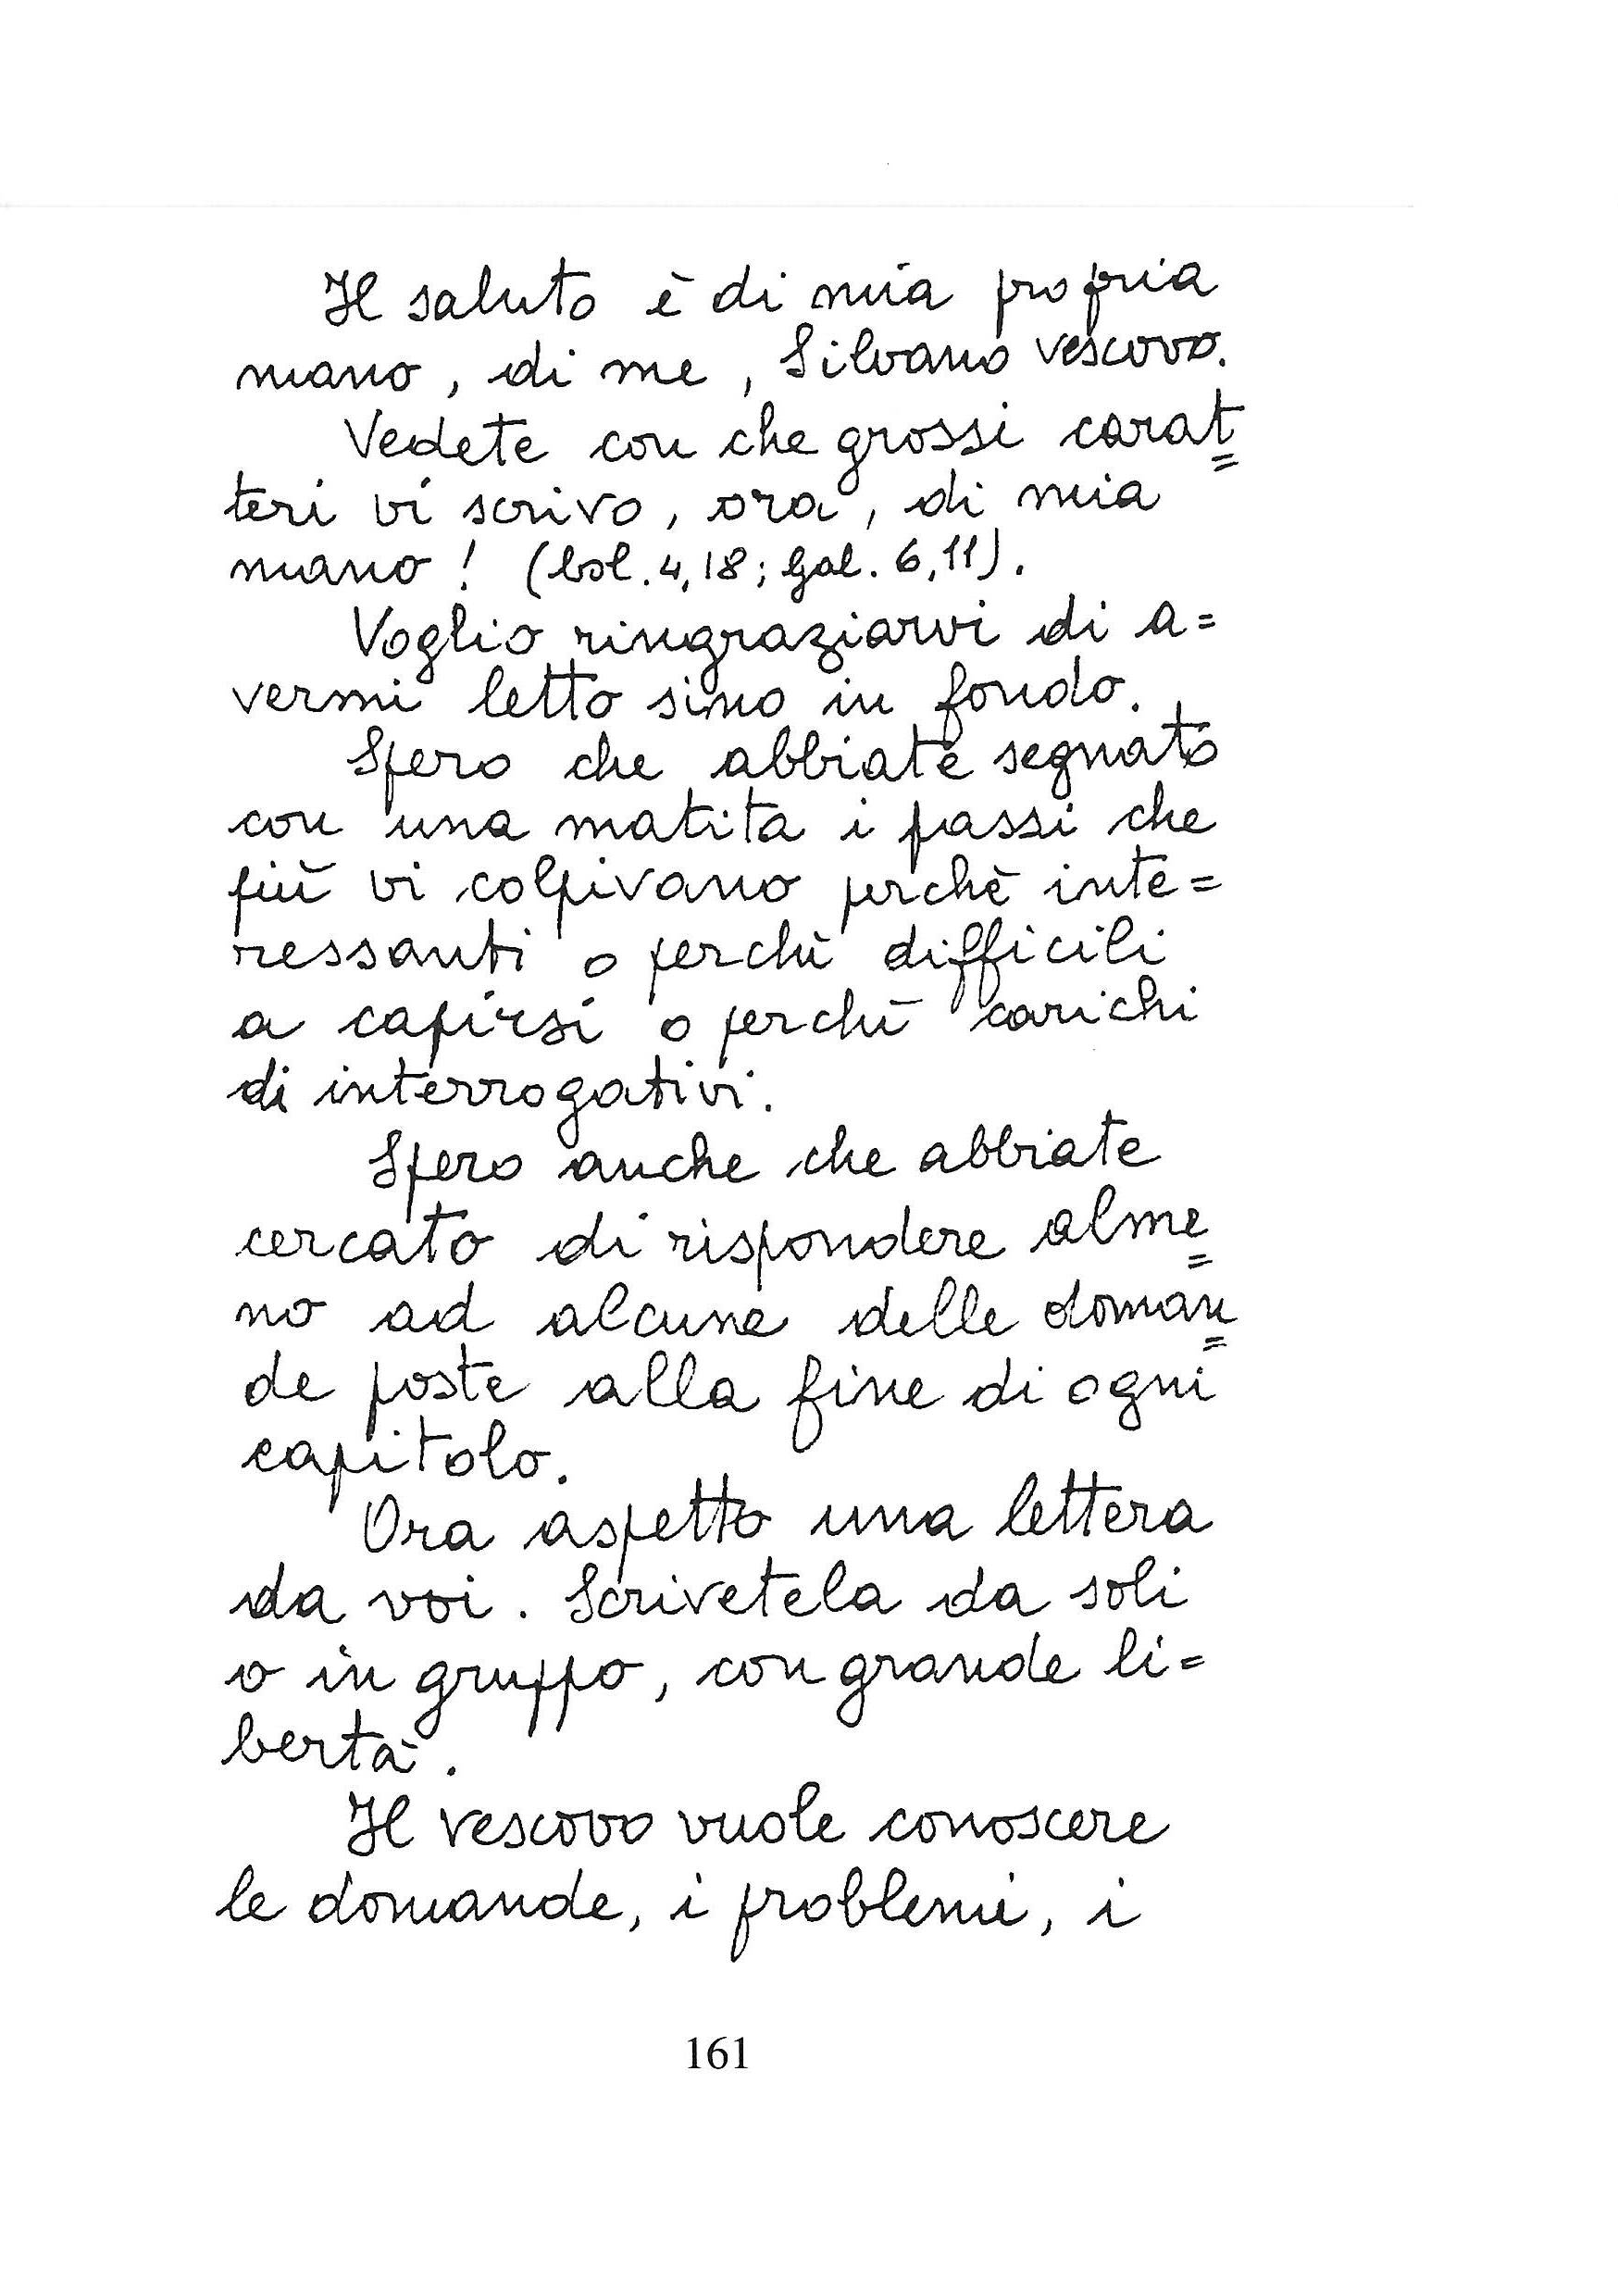 Il saluto è di mia propria
mano, di me, Silvano vescovo.
Vedete con che grossi carat=
teri vi scrivo, ora, di mia
mano! (Col. 4,18; Gal. 6,11).
Voglio ringraziarvi di a=
vermi letto sino in fondo.
Spero che abbiate segnato
con una matita i passi che
più vi colpivano perchè inte=
ressanti o perchè difficili
a capirsi o perchè carichi
di interrogativi.
Spero anche che abbiate
cercato di rispondere alme=
no ad alcune delle doman=
de poste alla fine di ogni
capitolo.
Ora aspetto una lettera
da voi. Scrivetela da soli
o in gruppo, con grande li=
bertà.
Il vescovo vuole conoscere
le domande, i problemi, i
161